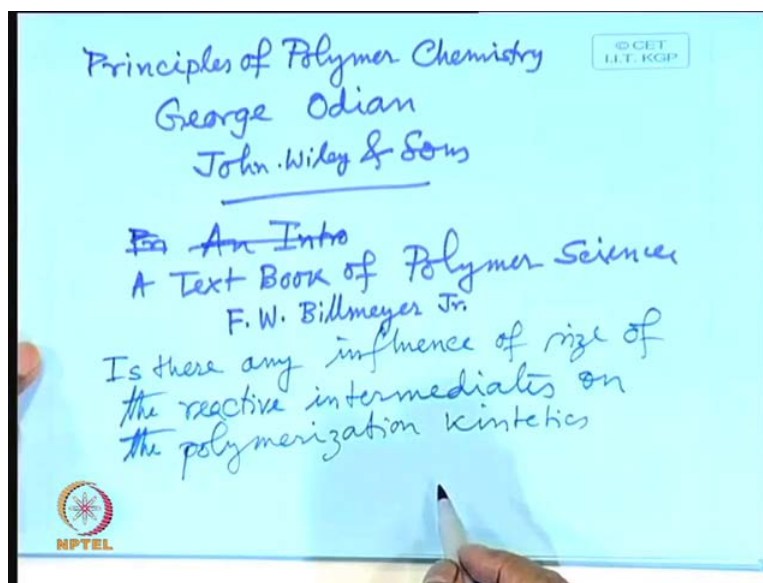 Principles of Polymer Chemistry
© CET
I.I.T. KGP
George Odian
John. Wiley & Sons
Pn An Intro
A Text Book of Polymer Science
F. W. Billmeyer Jr.
Is there any influence of size of
the reactive intermediates on
the polymerization kintetics
NPTEL